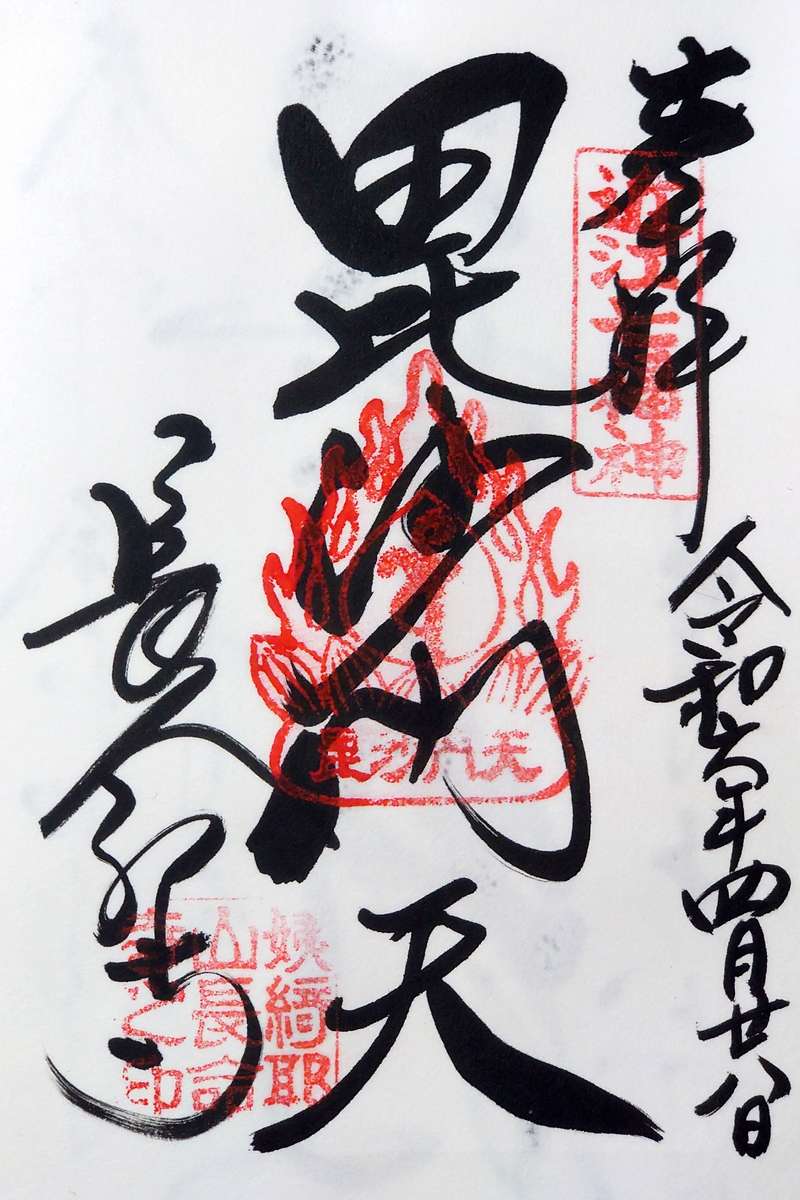 奉拝
令和六年四月廿八日
近江七福神
毘沙門天
毘沙門天
長命寺
姨綺耶
山長命
寺之印